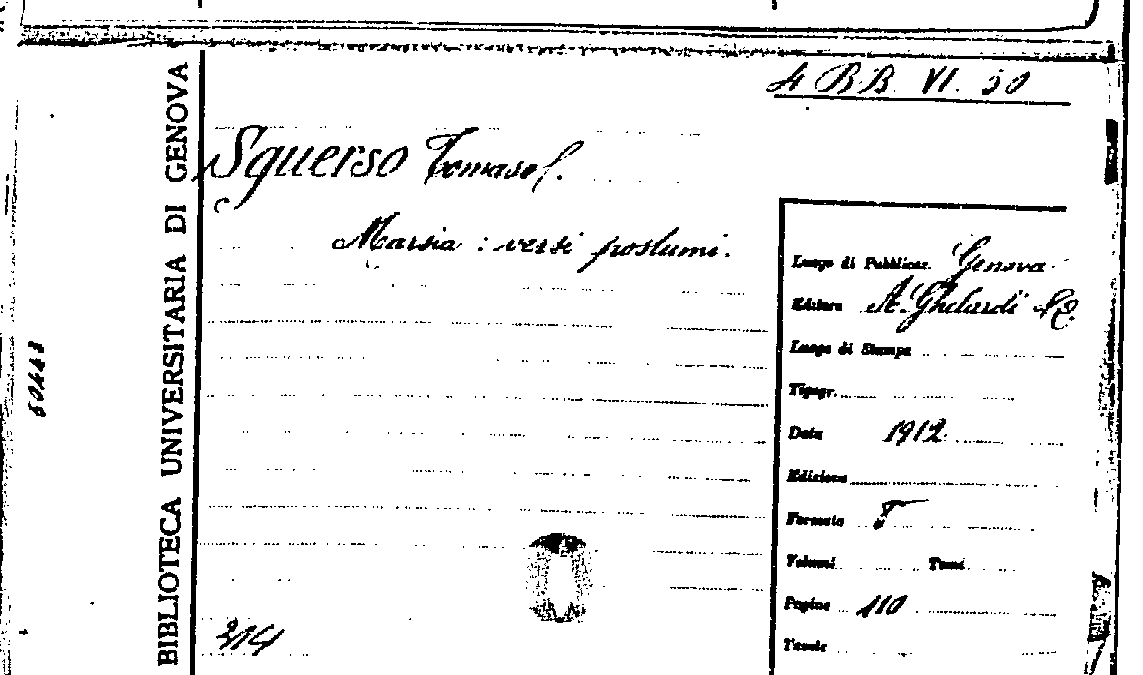 4 BB. VI. 50
BIBLIOTECA UNIVERSITARIA DI GENOVA
Squerso Tomaso.
Marsia : versi postumi.
Luogo di Pubblicaz. Genova
Editore A. Ghelardi
Luogo di Stampa
Tipogr.
Data 1912
Edizione
Formato
Volumi Tomi
Pagine 110
Tavole